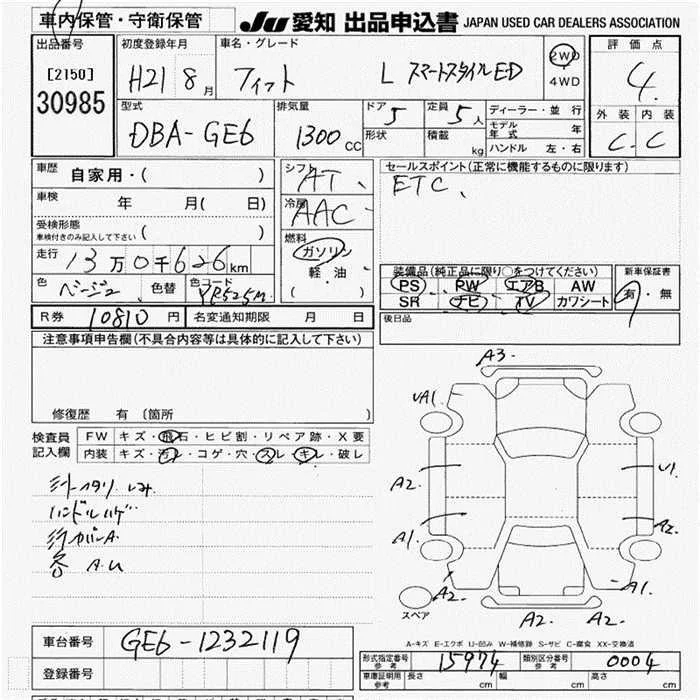 車内保管・守衛保管
JU 愛知 出品申込書 JAPAN USED CAR DEALERS ASSOCIATION
出品番号
[2150]
30985
初度登録年月
H21 8月
車名・グレード
フィット L スマートスタイルED
2WD
4WD
評価点
4.
外装 内装
C. C
型式
DBA-GE6
排気量
1300 CC
ドア 5
形状
定員 5人
積載 kg
ディーラー・並行
モデル年式 年
ハンドル 左・右
車歴 自家用・( )
車検 年 月( 日)
受検形態
車検付きのみ記入して下さい ( )
走行 13万0千626km
色 ベージュ 色替 色コード YR525M
シフト AT
冷房 AAC
燃料
ガソリン
軽・油
( )
セールスポイント(正常に機能するものに限ります)
ETC、
装備品(純正品に限り○をつけてください)
PS PW エアB AW
SR ナビ TV カワシート
新車保証書
有・無
後日品
R券 10810円 名変通知期限 月 日
注意事項申告欄(不具合内容等は具体的に記入して下さい)
修復歴 有 〔箇所 〕
検査員記入欄
FW キズ・飛石・ヒビ割・リペア跡・X要
内装 キズ・汚レ・コゲ・穴・スレ・キレ・破レ
ハンドルハゲ
A.U
A3.
UA1.
A2.
U1.
A1.
A2.
A2.
A1.
スペア
A2. A2.
A-キズ E-エクボ U-凹み W-補修跡 S-サビ C-腐食 XX-交換済
車台番号 GE6-1232119
登録番号
形式指定番号 参考 15974 類別区分番号 参考 0004
車庫証明用 参考 長さ cm 幅 cm 高さ cm